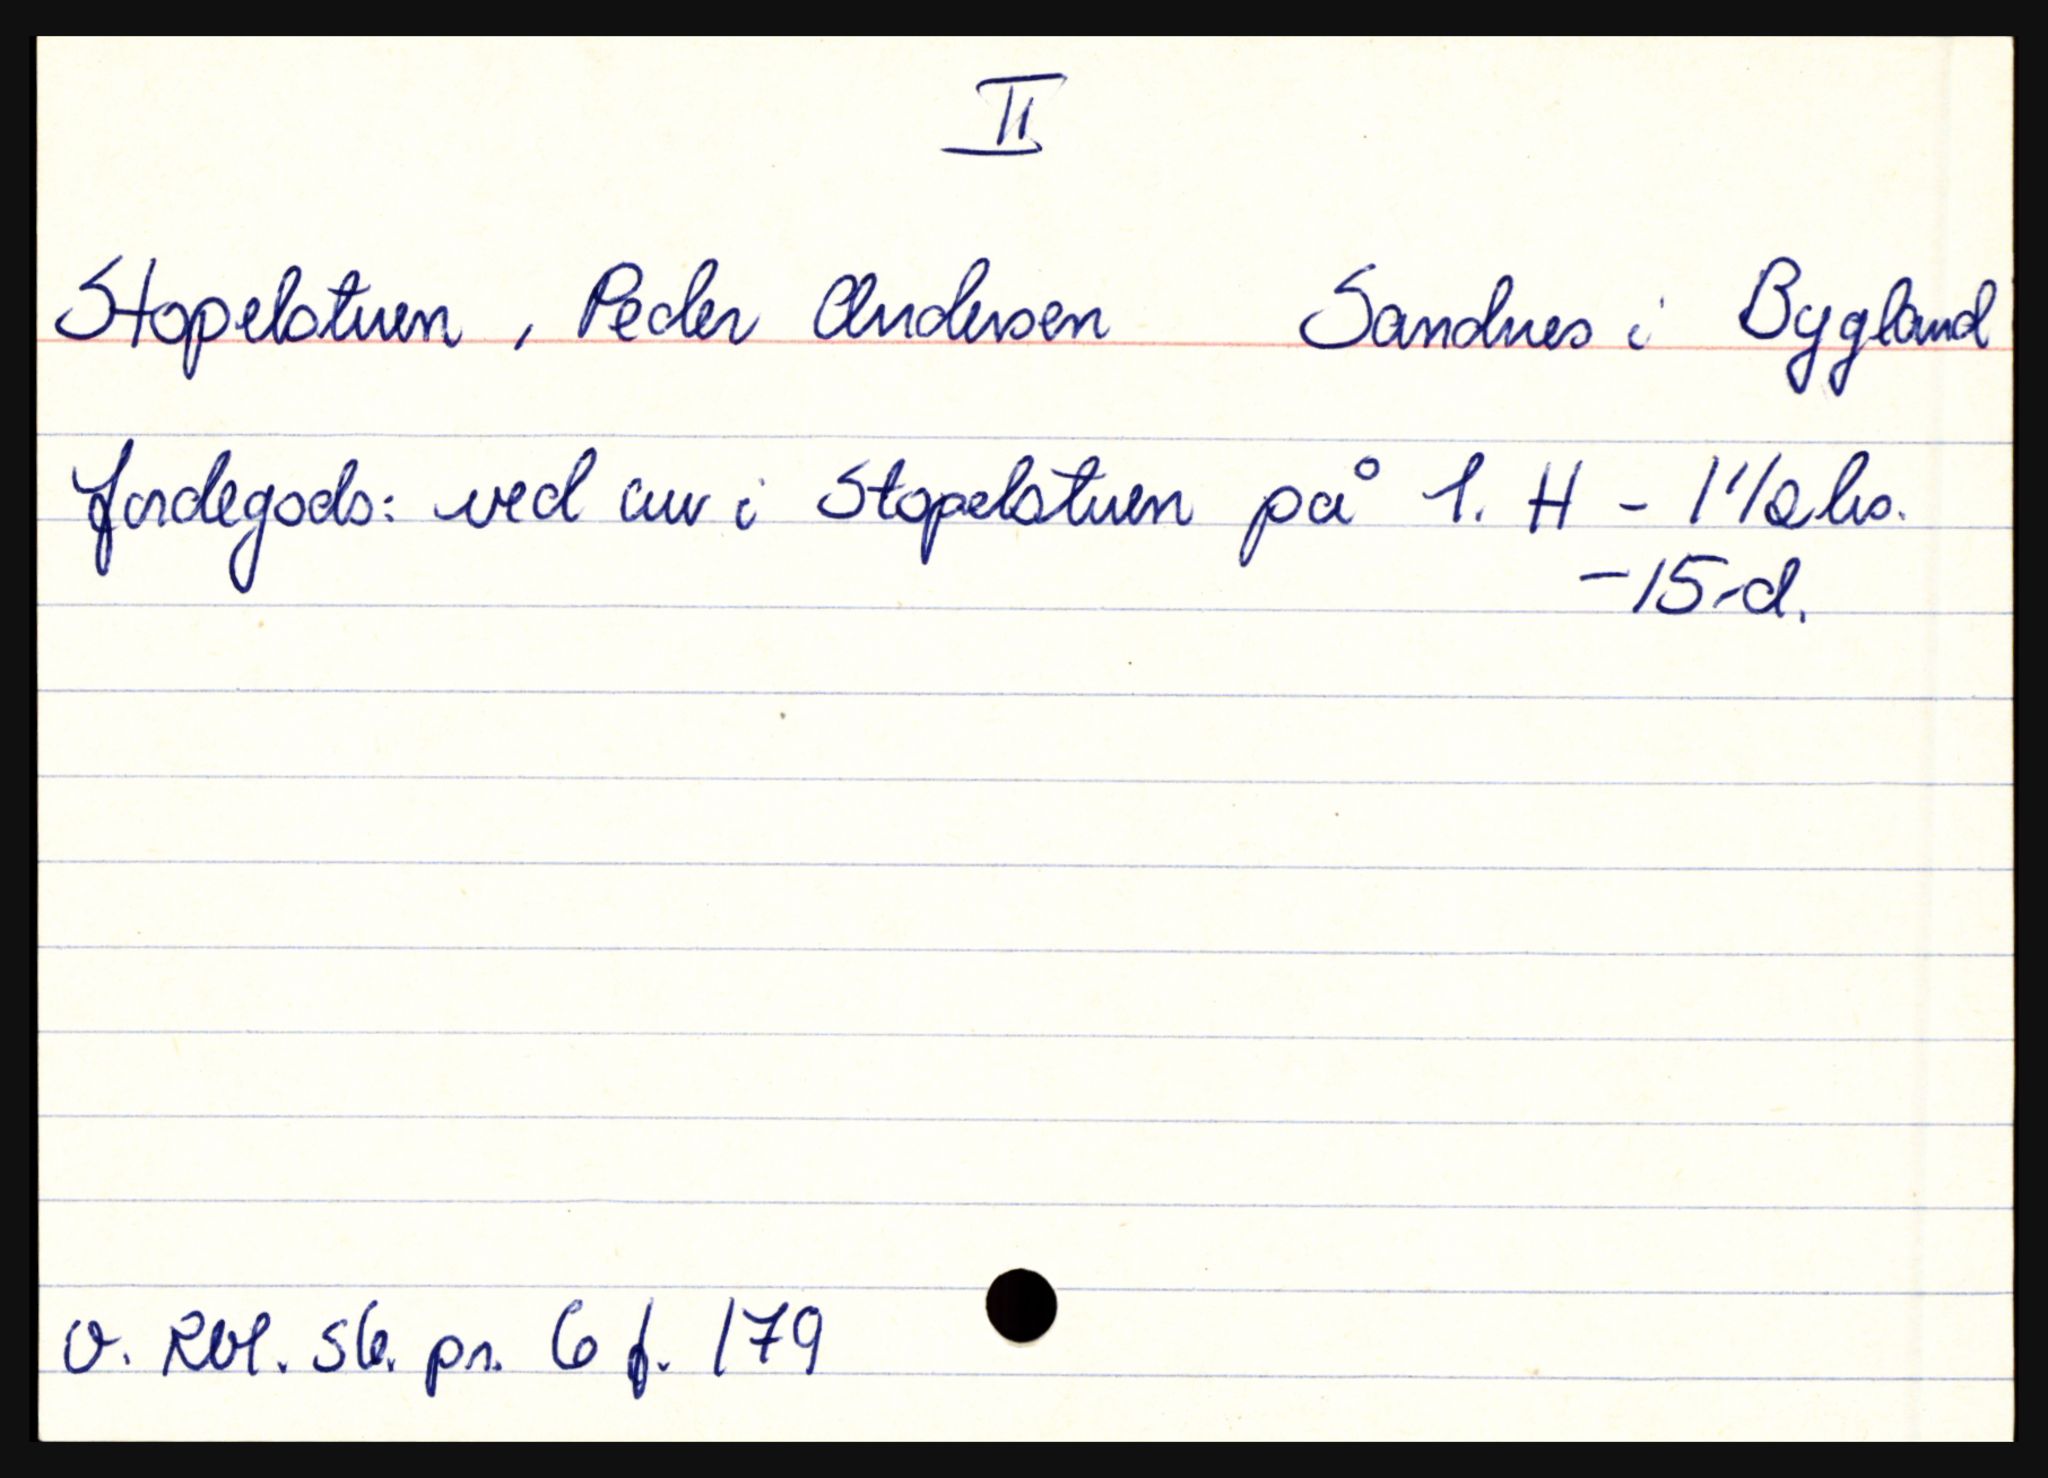 II
Stopelstuen, Peder Andersen Sandnes i Bygland
Jordegods: ved arv i Stopelstuen på 1. H - 1 1/2 hs.
- 15 d.
v. Rbl. sk. pr. 6 f. 179